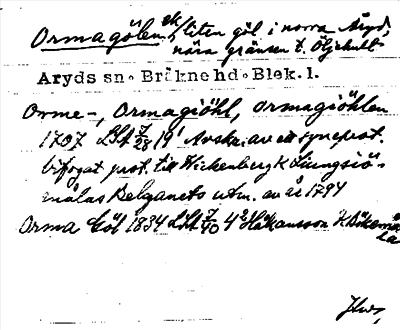 Ormagölen, ek, liten göl i norra Åryd,
nära gränsen t. Öljehult
Aryds sn. Bräkne hd. Blek. l.
Orme-, Ormagiöhl, Ormagiöhlen
1707 LSA 7/28 19' Avskr. av ett syneprot.
bifogat prot. till Wickenberg K Ljungsjö-
målas Belganets utm. av år 1794
Orma Göl 1834 LSA 7/40 4² Håkansson K Bökemåla